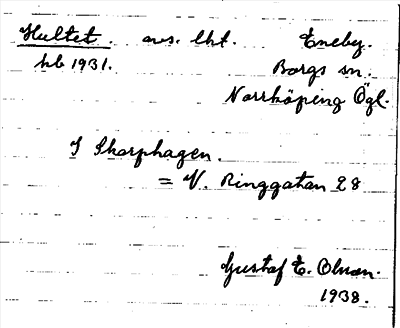 Hultet. avs. lht. Eneby.
hb 1931. Borgs sn.
Norrköping Ögl.
I Skarphagen.
= V. Ringgatan 28
Gustaf E. Olsson.
1938.